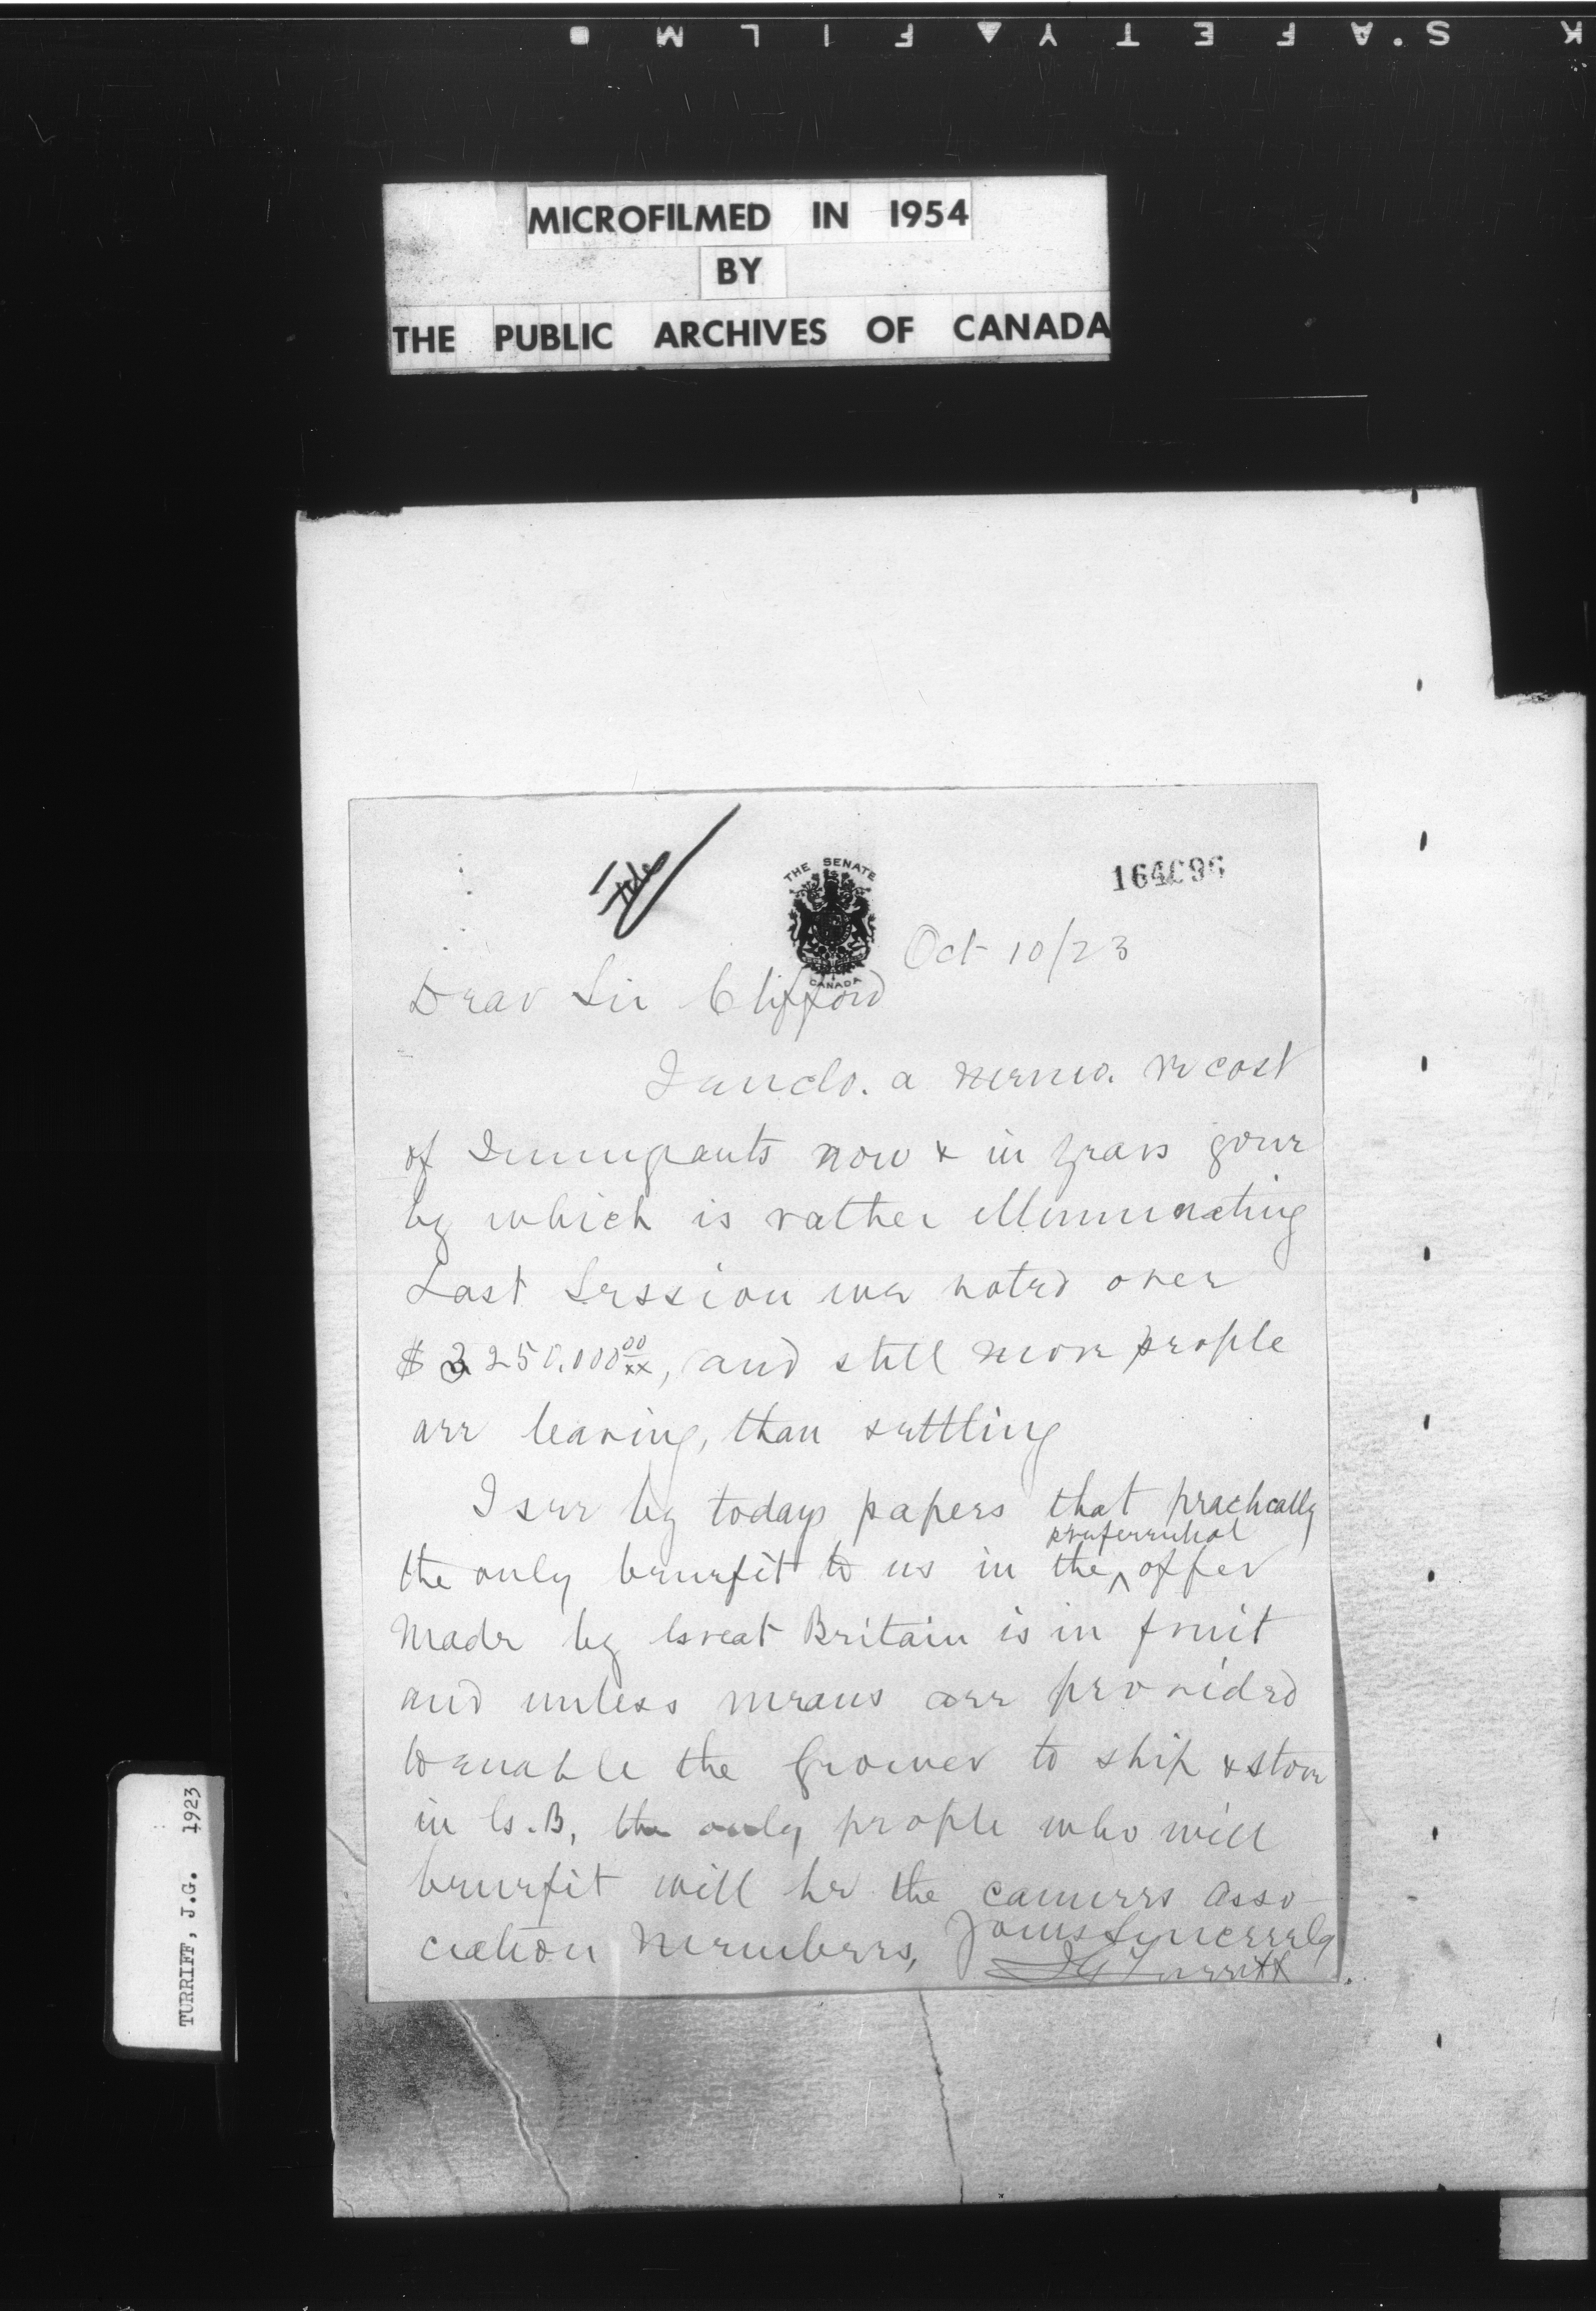 K S.AFETY▲FILM
MICROFILMED IN 1954
BY
THE PUBLIC ARCHIVES OF CANADA
File
THE SENATE
CANADA
164696
Oct 10/23
Dear Sir Clifford
I enclo. a memo. re cost
of Immigrants now & in years gone
by which is rather illuminating
Last Session we voted over
$3250.000 00/xx, and still more people
are leaving, than settling
I see by todays papers that practically
preferential
the only benefit to us in the ^ offer
made by Great Britain is in fruit
and unless means are provided
to enable the Grower to ship & store
in G.B, the only people who will
benefit will be the canners Asso-
ciation Members,
Yours Sincerely
JG Turriff
TURRIFF, J.G. 1923